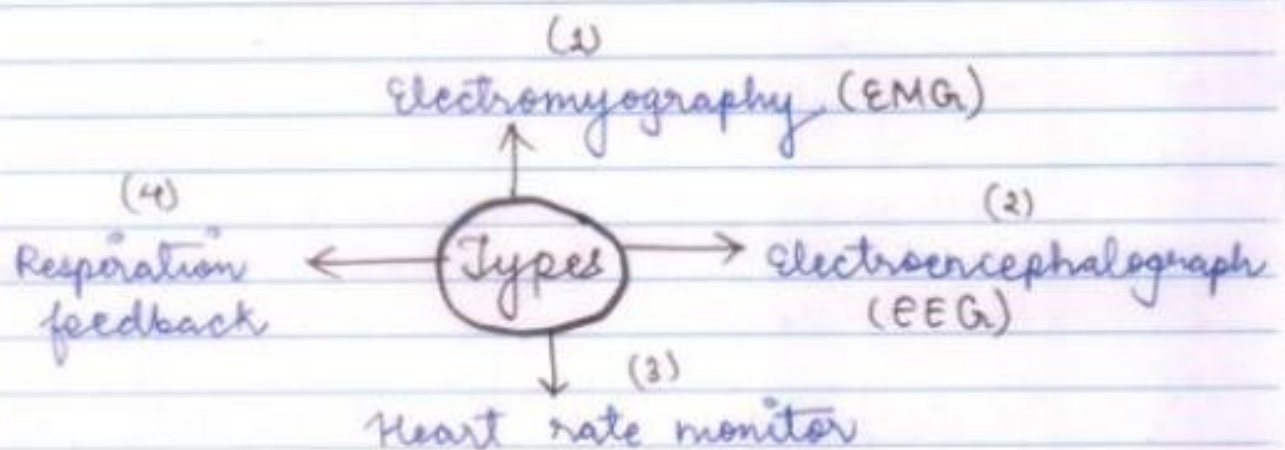 (1)
Electromyography (EMG)
(4)
(2)
Respiration
feedback
Types
Electroencephalograph
(EEG)
(3)
Heart rate monitor